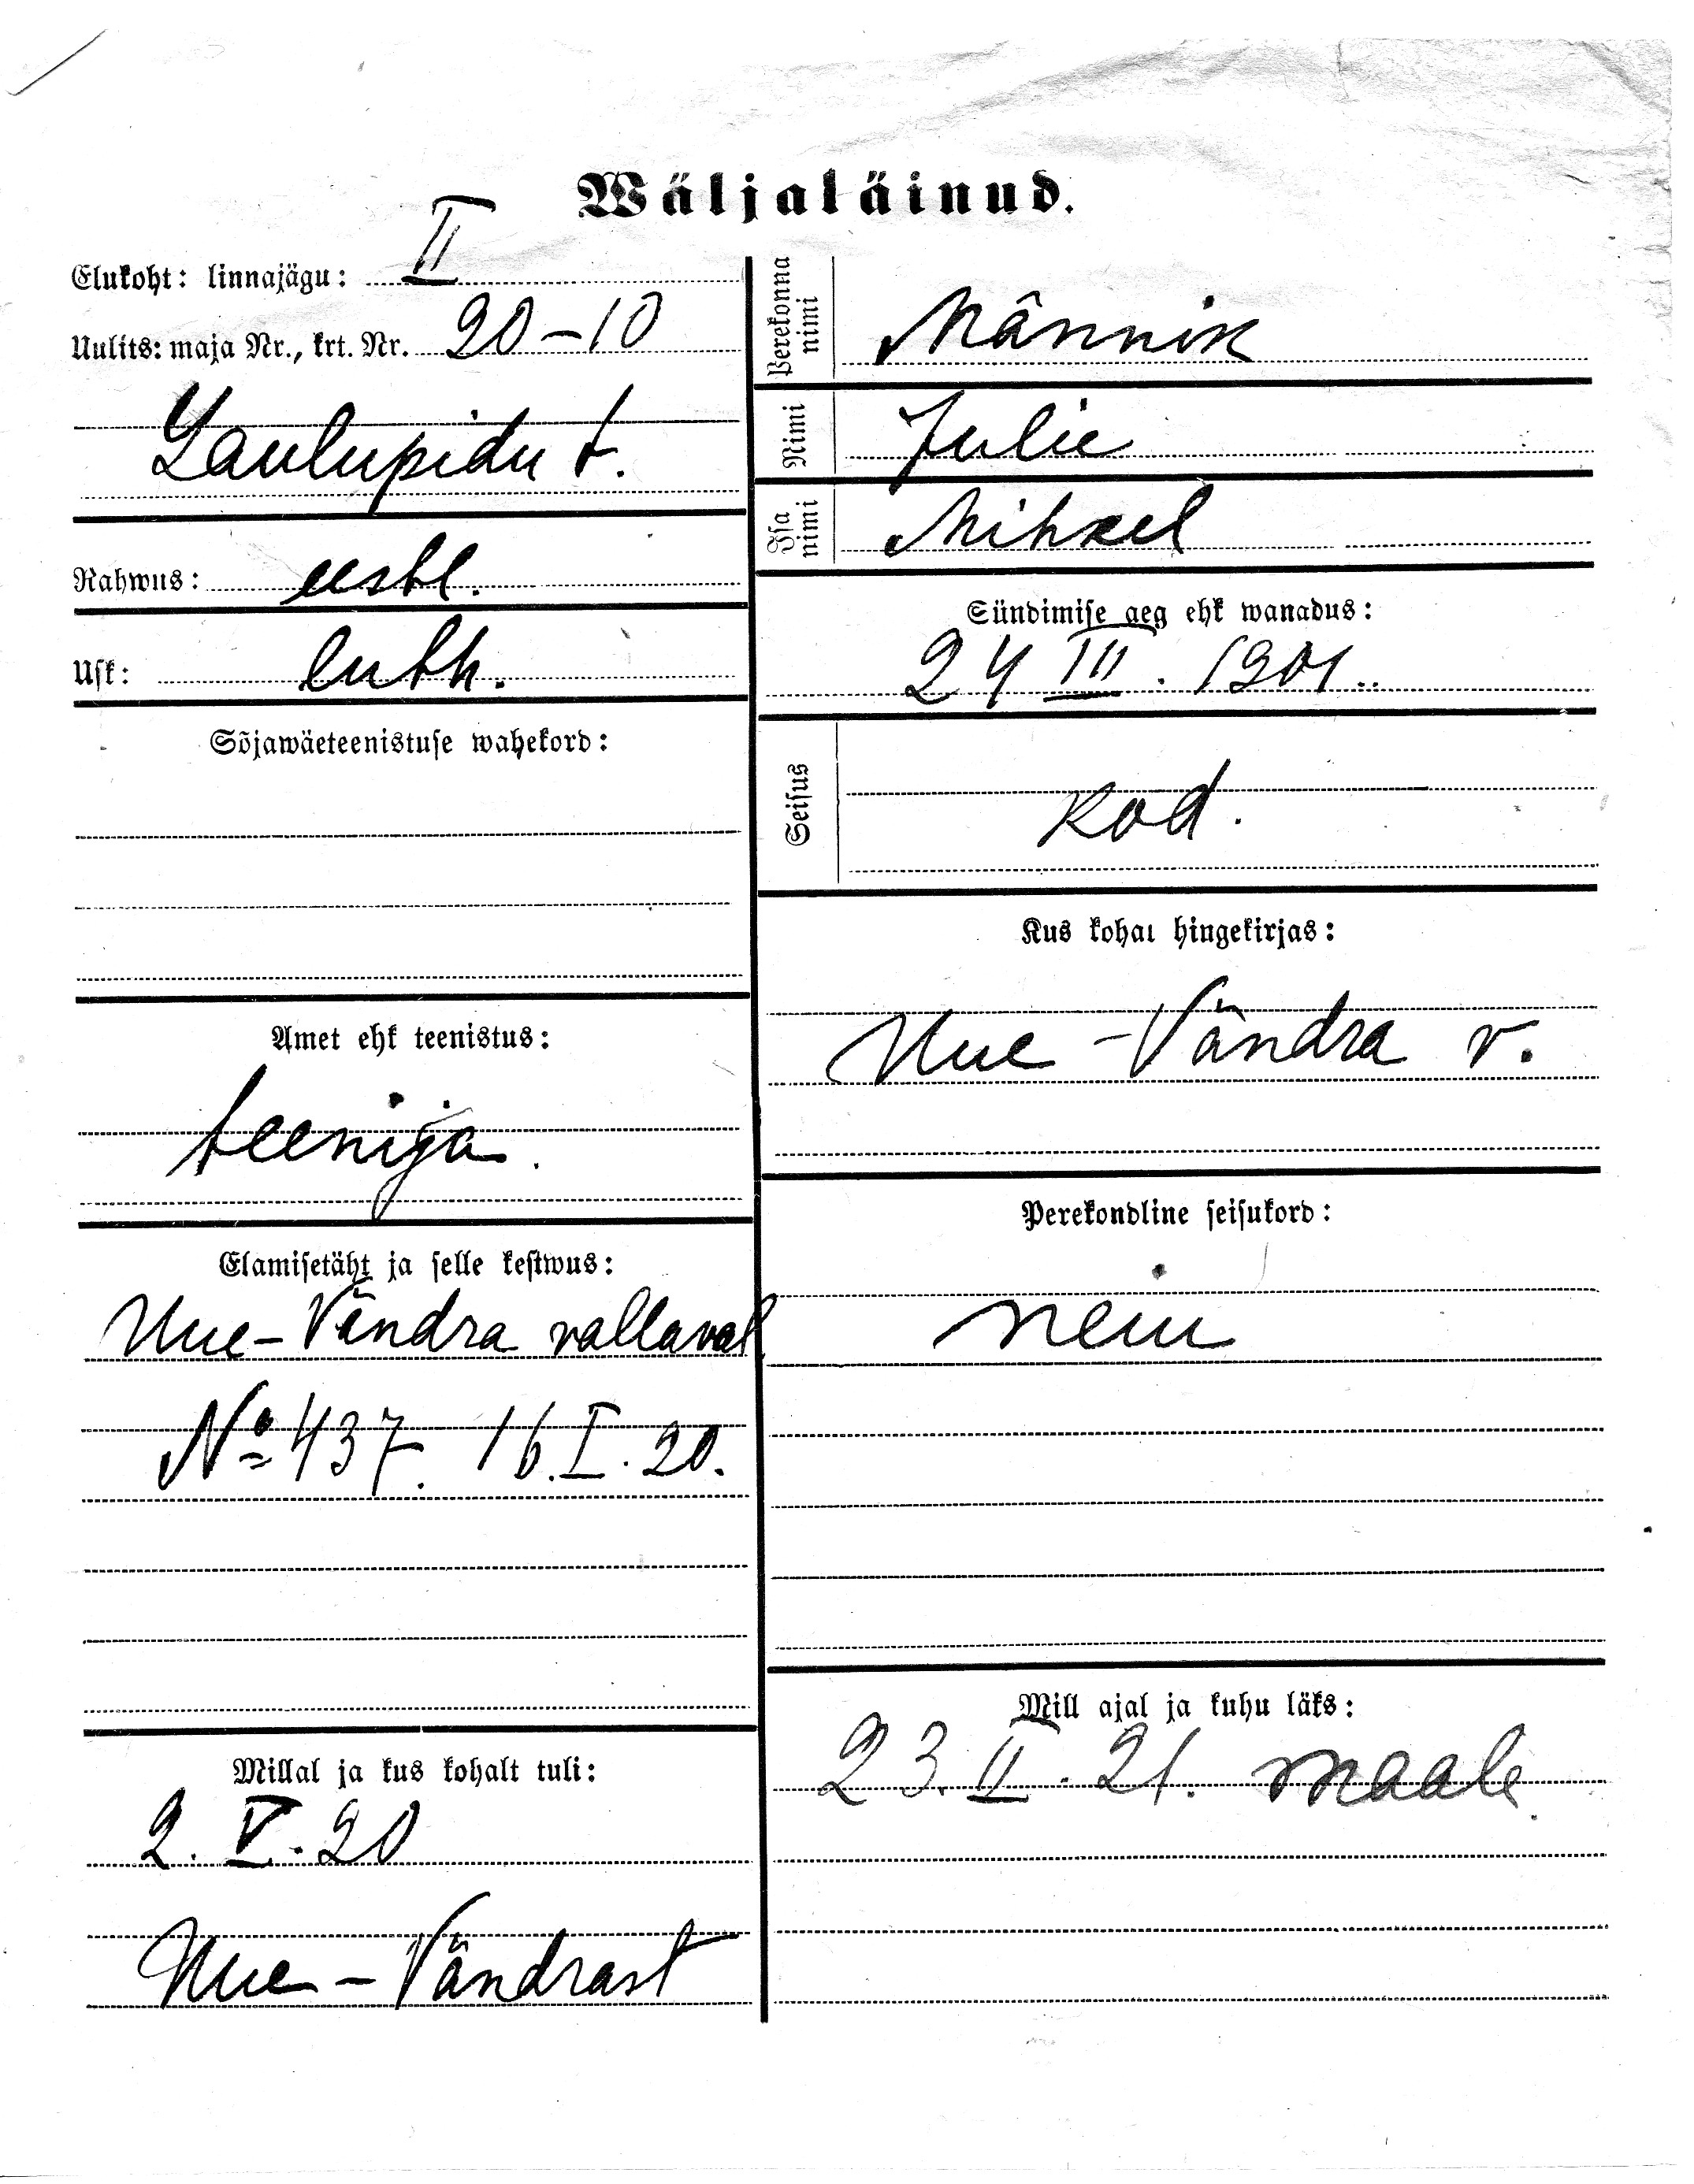 Wäljaläinud.
Elukoht: linnajägu: II
Uulits: maja Nr., krt. Nr. 20-10
Laulupidu t.
Rahwus: eestl.
Usk: luth.
Sõjawäeteenistuse wahekord:
Amet ehk teenistus:
teenija.
Elamisetäht ja selle kestwus:
Uue-Vändra vallaval.
№ 437. 16.I.20.
Millal ja kus kohalt tuli:
2. V. 20
Uue-Vändrast
Perekonna nimi Männik
Nimi Julie
Isa nimi Mihkel
Sündimise aeg ehk wanadus:
24 III. 1901.
Seisus kod.
Kus kohal hingekirjas:
Uue-Vändra v.
Perekondline seisukord:
neiu
Mill ajal ja kuhu läks:
23. II. 21. maale.